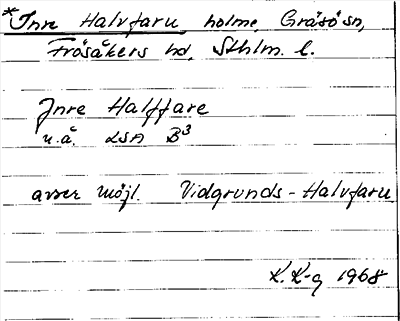 *Inre Halvfaru, holme, Gräsö sn,
Frösåkers hd, Sthlm. l.
Inre Halffare
u.å. LSA B³
avser möjl. Vidgrunds-Halvfaru
K. K-g 1968